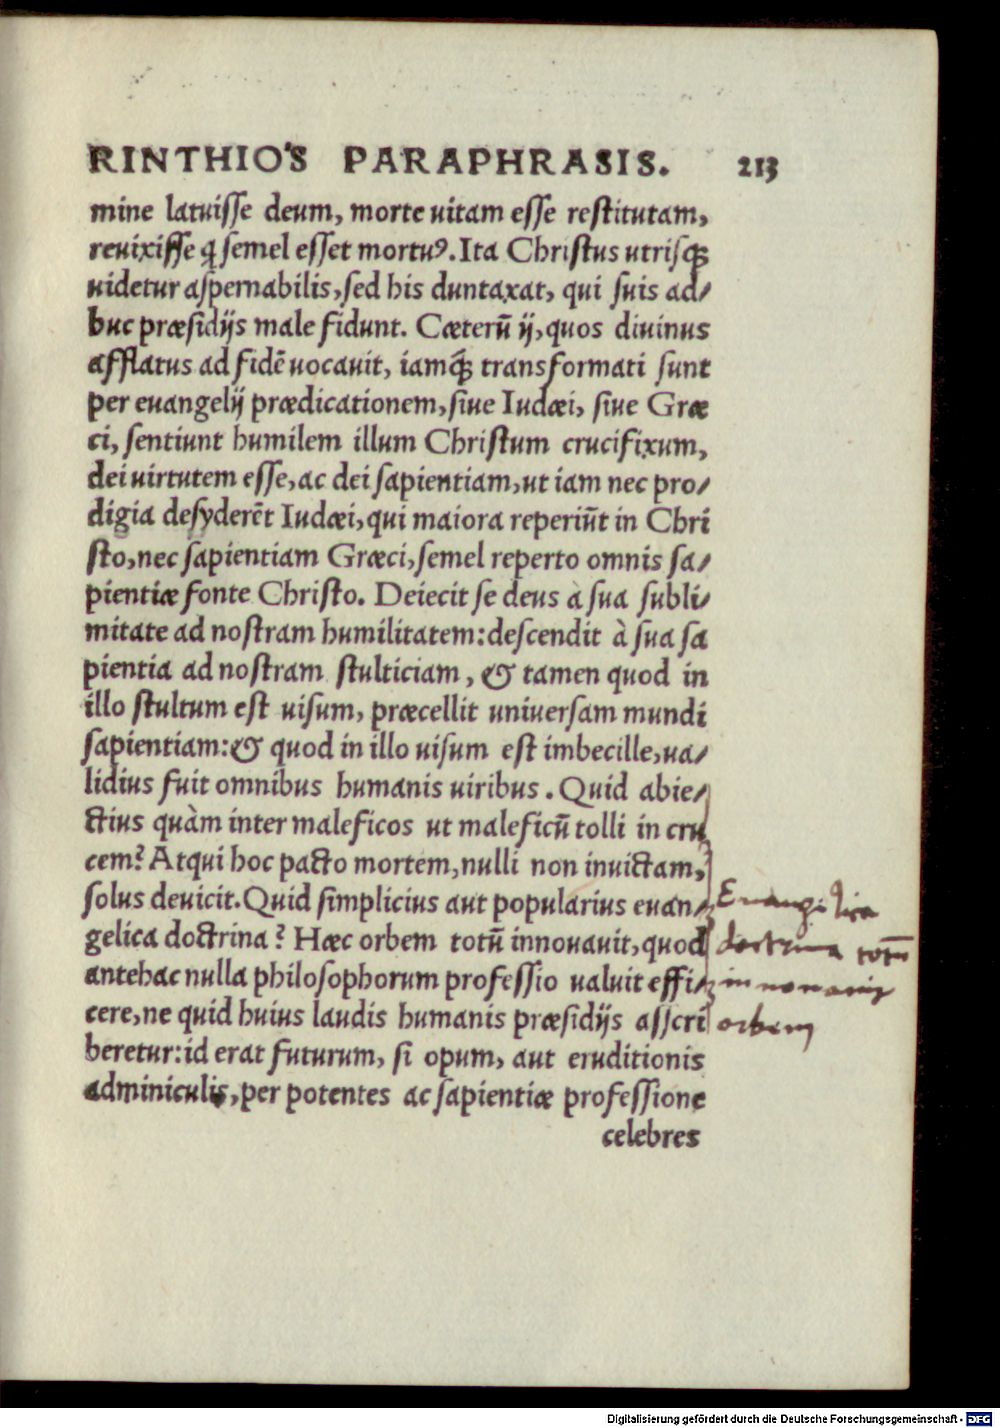 RINTHIO'S PARAPHRASIS. 213
mine latuisse deum, morte uitam esse restitutam,
reuixisse q̃ semel esset mortuꝰ. Ita Christus utrisq́;
uidetur aspernabilis, sed his duntaxat, qui suis ad-
huc præsidijs male fidunt. Cæterũ ij, quos diuinus
afflatus ad fidẽ uocauit, iamq́; transformati sunt
per euangelij prædicationem, siue Iudæi, siue Græ
ci, sentiunt humilem illum Christum crucifixum,
dei uirtutem esse, ac dei sapientiam, ut iam nec pro-
digia desyderẽt Iudæi, qui maiora reperiũt in Chri
sto, nec sapientiam Græci, semel reperto omnis sa-
pientiæ fonte Christo. Deiecit se deus à sua subli-
mitate ad nostram humilitatem: descendit à sua sa
pientia ad nostram stulticiam, & tamen quod in
illo stultum est uisum, præcellit uniuersam mundi
sapientiam: & quod in illo uisum est imbecille, ua-
lidius fuit omnibus humanis uiribus. Quid abie-
ctius quàm inter maleficos ut maleficũ tolli in cru
cem? Atqui hoc pacto mortem, nulli non inuictam,
solus deuicit. Quid simplicius aut popularius euan-
gelica doctrina? Hæc orbem totũ innouauit, quod
antehac nulla philosophorum professio ualuit effi-
cere, ne quid huius laudis humanis præsidijs asscri
beretur: id erat futurum, si opum, aut eruditionis
adminiculis, per potentes ac sapientiæ professione
celebres
Euangelica
doctrina totũ
innouauit
orbem
Digitalisierung gefördert durch die Deutsche Forschungsgemeinschaft - DFG